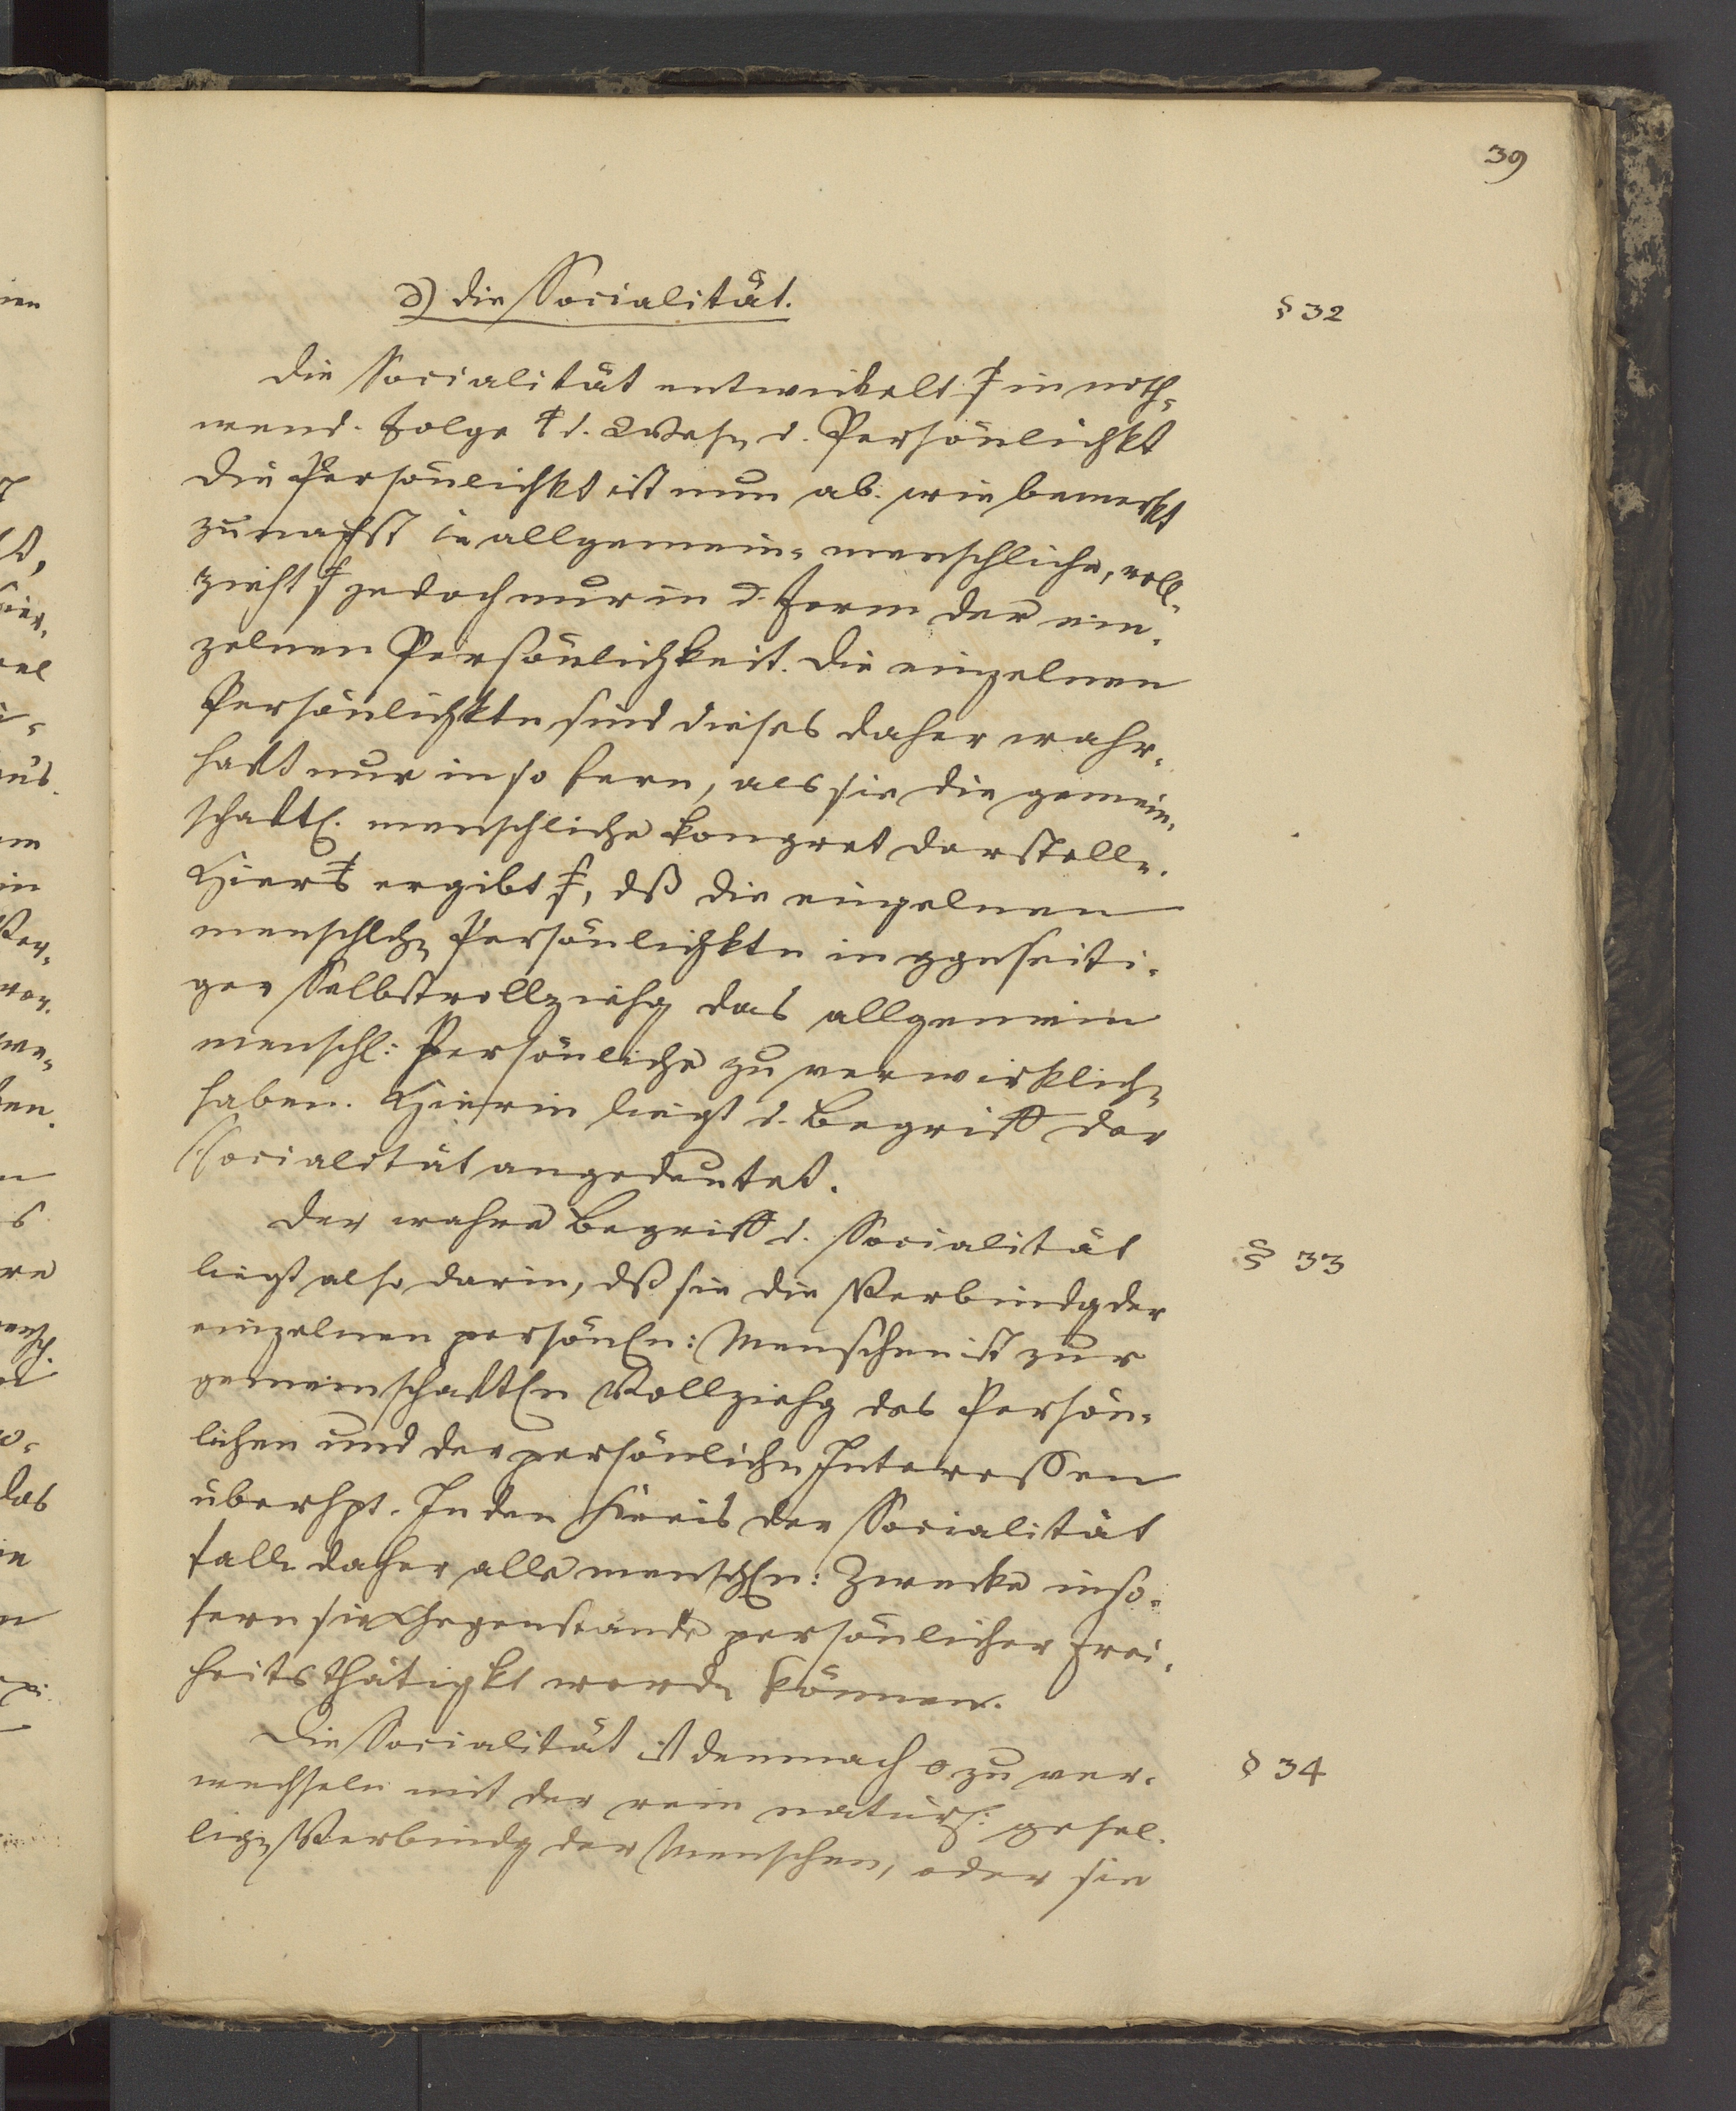 39
d) die Socialität.
§ 32
Die Socialität entwickelt in noth-
wend. Folge d. Wesen d. Persönlichkt
Die Persönlichkt ist nun ab. wie bemerkt
zunachst allgemein-menschliche, voll-
zieht jedoch nur in d. Form der ein-
zelnen Persönlichkeit. Die einzelnen
Persönlichktn sind dieses daher wahr-
haft nur in so fern, als sie die gemein-
schaftl. menschliche kongret darstelln.
Hier ergibt , dß die einzelnen
menschlchn Persönlichktn in ggnseiti-
ger Selbstvollziehg das allgemein
menschl: Persönliche zu verwirklichn
haben. Hierin liegt d. Begriff der
Socialität angedeutet.
Der wahre Begriff d. Socialität
§ 33
liegt also darin, dß sie die Verbindg der
einzelnen persönln: Menschen ist zur
gemeinschaftln Vollziehg des Persön-
lichen und der persönlichn Interessen
überhpt. In den Kreis der Socialität
falln daher alle menschln: Zwecke inso-
fern sie Gegenstande persönlicher Frei-
heitsthätigkt werdn können.
Die Socialität ist demnach o zu ver-
§ 34
wechseln mit der rein natürl: gesel-
lign Verbindg der Menschen, oder sie